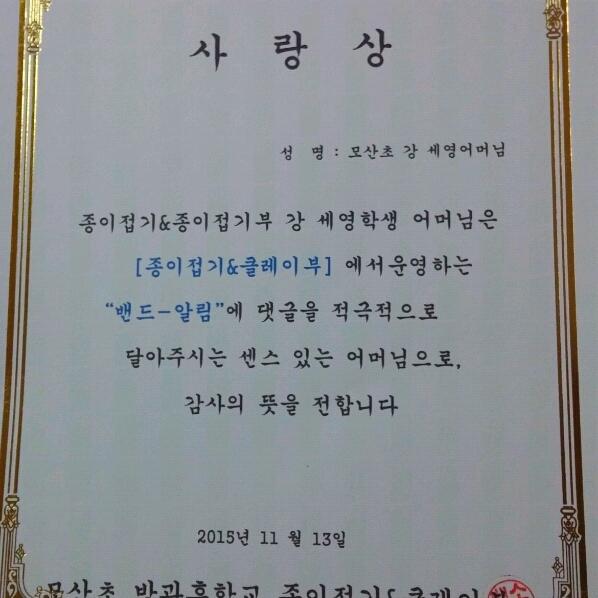 사 랑 상
성 명 : 모산초 강 세영어머님
종이접기&종이접기부 강 세영학생 어머님은
[종이접기&클레이부] 에서운영하는
“밴드-알림”에 댓글을 적극적으로
달아주시는 센스 있는 어머님으로,
감사의 뜻을 전합니다
2015년 11 월 13일
모산초 방과후학교 종이접기& 클레이